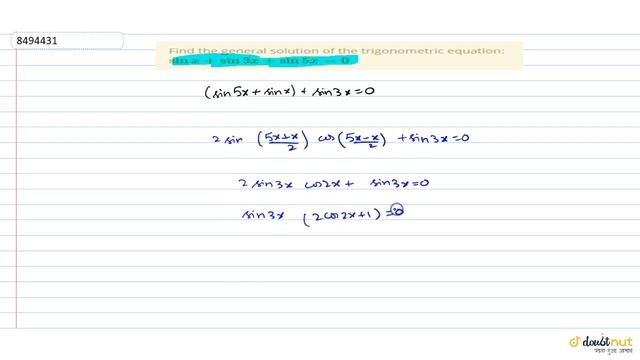 8494431
Find the general solution of the trigonometric equation:
sin x + sin 3x + sin 5x = 0
(sin5x + sinx) + sin3x = 0
2 sin (5x+x/2) cos(5x-x/2) + sin3x = 0
2 sin3x cos2x + sin3x = 0
sin3x (2cos2x+1) = 0
doubtnut